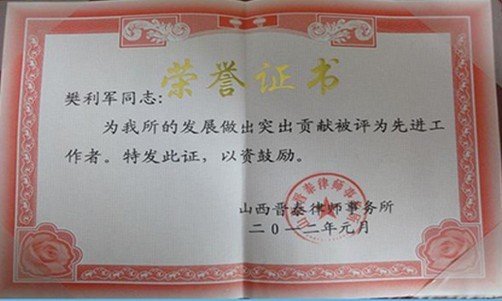 荣誉证书
樊利军同志:
为我所的发展做出突出贡献被评为先进工
作者。特发此证，以资鼓励。
山西晋泰律师事务所
二〇一二年元月
山西晋泰律师事务所